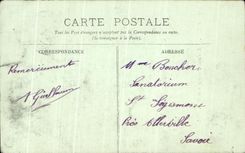 CARTE POSTALE
Tous les Pays étrangers n'acceptent pas la Correspondance au recto.
(Se renseigner à la Poste).
CORRESPONDANCE
ADRESSE
Remerciements
Guillaume
Mme Boucher
Sanatorium
St Sigismond
Près Albertville
Savoie